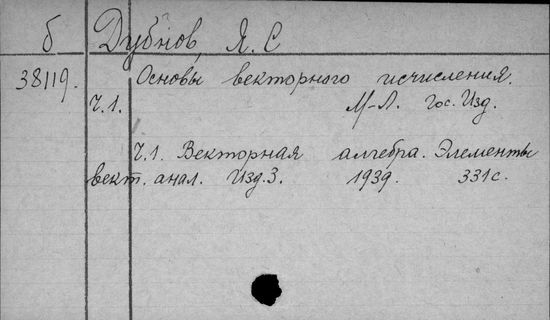 б Дубнов, Я. С
38119. Основы векторного исчисления.
Ч.1. М-Л. Гос. Изд.
Ч.1. Векторная алгебра. Элементы
вект. анал. Изд. 3. 1939. 331 с.